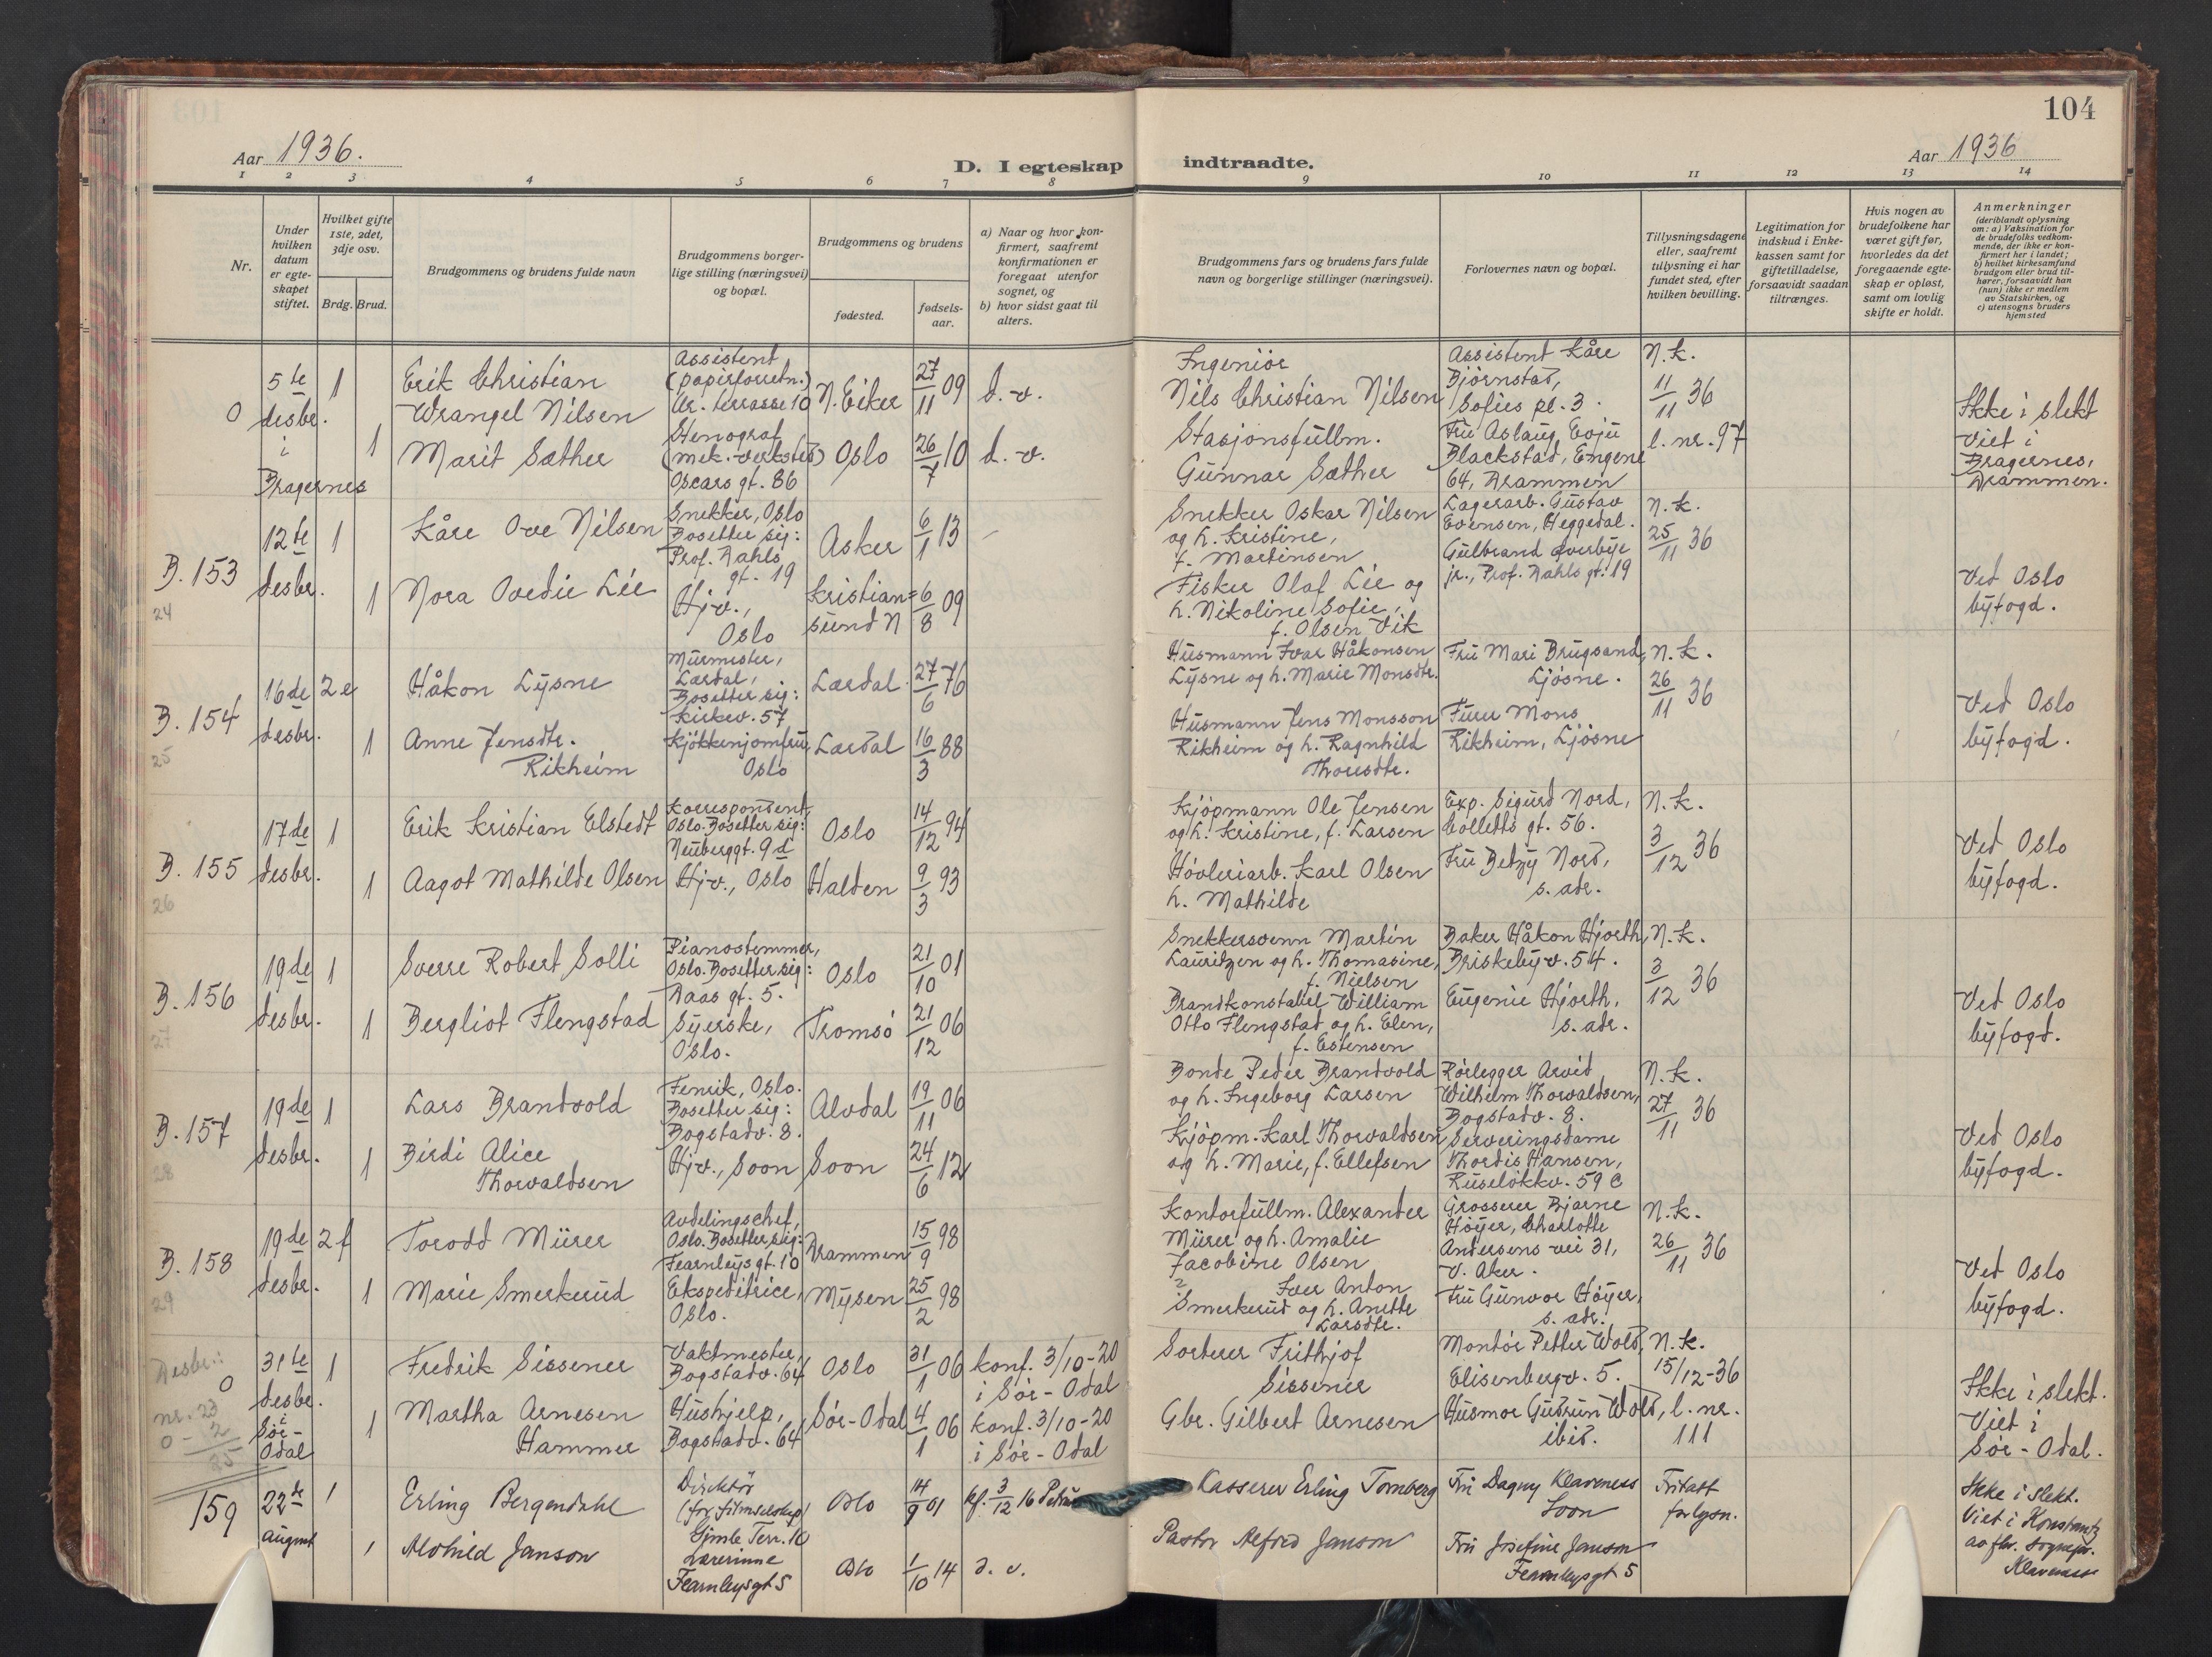 103
104
Aar 1936.
D. I egteskap
indtraadte.
Aar 1936
1 2 3 4 5 6 7 8 9 10 11 12 13 14
Nr.
Under hvilken datum er egteskapet stiftet.
Hvilket gifte 1ste, 2det, 3dje osv.
Brdg. Brud.
Brudgommens og brudens fulde navn
Brudgommens borgerlige stilling (næringsvei) og bopæl.
Brudgommens og brudens
fødested.
fødselsaar.
a) Naar og hvor konfirmert, saafremt konfirmationen er foregaat utenfor sognet, og
b) hvor sidst gaat til alters.
Brudgommens fars og brudens fars fulde navn og borgerlige stillinger (næringsvei).
Forlovernes navn og bopæl.
Tillysningsdagene eller, saafremt tillysning ei har fundet sted, efter hvilken bevilling.
Legitimation for indskud i Enkekassen samt for giftetilladelse, forsaavidt saadan tiltrænges.
Hvis nogen av brudefolkene har været gift før, hvorledes da det foregaaende egteskap er opløst, samt om lovlig skifte er holdt.
Anmerkninger
(deriblandt oplysning om: a) Vaksination for de brudefolks vedkommende, der ikke er konfirmert her i landet; b) hvilket kirkesamfund brudgom eller brud tilhører, forsaavidt han (hun) ikke er medlem av Statskirken, og c) utensogns bruders hjemsted
0
5te desbr. i Bragernes
1
Erik Christian Wrangel Nilsen
Assistent (papirforretn.) Ur. terrasse 10
N. Eiker
27/11 09
d. v.
Ingeniør Nils Christian Nilsen
Assistent Kåre Bjørnstad, Sofies pl. 3.
N.k. 11/11 36
l. nr. 97
Ikke i slekt Viet i Bragernes, Drammen.
1
Marit Sæther
Stenograf (mek. verksted) Oscars gt. 86
Oslo
26/7 10
d. v.
Stasjonsfullm. Gunnar Sæther
Fru Aslaug Evju Blackstad, Engene 64, Drammen
B. 153
24
12te desbr.
1
Kåre Ove Nilsen
Snekker, Oslo Bosetter sig: Prof. Dahls gt. 19
Asker
6/1 13
-
Snekker Oskar Nilsen og h. Kristine, f. Martinsen
Lagerarb. Gustav Evensen, Heggedal.
N.k. 25/11 36
Ved Oslo byfogd.
1
Nora Ovedie Lie
Hjv., Oslo
Kristiansund N
6/8 09
Fisker Olaf Lie og h. Nikoline Sofie, f. Olsen Vik
Gulbrand Øverbye jr., Prof. Dahls gt. 19
B. 154
25
16de desbr.
2e
Håkon Lysne
Murmester, Lærdal, Bosetter sig: Kirkev. 57
Lærdal
27/6 76
Husmann Ivar Håkonsen Lysne og h. Marie Monsdtr.
Fru Mari Brugsand, Ljøsne.
N.k. 26/11 36
Ved Oslo byfogd.
1
Anne Jensdtr. Rikheim
Kjøkkenjomfru, Oslo
Lærdal
16/3 88
Husmann Jens Monsson Rikheim og h. Ragnhild Thoresdtr.
Furer Mons Rikheim, Ljøsne
B. 155
26
17de desbr.
1
Erik Kristian Elstedt
Korrespondent, Oslo. Bosetter sig: Neuberggt. 9d
Oslo
14/12 94
Kjøpmann Ole Jensen og h. Kristine, f. Larsen
Exp. Sigurd Nord, Colletts gt. 56.
N.k. 3/12 36
Ved Oslo byfogd.
1
Aagot Mathilde Olsen
Hjv., Oslo
Halden
9/3 93
Høvleriarb. Karl Olsen h. Mathilde
Fru Betzy Nord, s. adr.
B. 156
27
19de desbr.
1
Sverre Robert Solli
Pianostemmer, Oslo. Bosetter sig: Daas gt. 5.
Oslo
21/10 01
Snekkersvenn Martin Lauritzen og h. Thomasine, f. Nielsen
Baker Håkon Hjorth, Briskebyv. 54.
N.k. 3/12 36
Ved Oslo byfogd.
1
Bergliot Flengstad
Syerske, Oslo.
Tromsø
21/12 06
Brandkonstabel William Otto Flengstad og h. Elen, f. Estensen
Eugenie Hjorth, s. adr.
B. 157
28
19de desbr.
1
Lars Brandvold
Fenrik, Oslo. Bosetter sig: Bogstadv. 8.
Alvdal
19/11 06
Bonde Peder Brandvold og h. Ingeborg Larsen
Rørlegger Arvid Wilhelm Thorvaldsen, Bogstadv. 8.
N.k. 27/11 36
Ved Oslo byfogd.
1
Birdi Alice Thorvaldsen
Hjv., Soon
Soon
24/6 12
Kjøpm. Karl Thorvaldsen og h. Marie, f. Ellefsen
Serveringsdame Thordis Hansen, Ruseløkkv. 59 C
B. 158
29
19de desbr.
2f
Torodd Mürer
Avdelingschef, Oslo. Bosetter sig: Fearnleysgt. 10
Drammen
15/9 98
Kontorfullm. Alexander Mürer og h. Amalie Jacobine Olsen
Grosserer Bjarne Høyer, Charlotte Andersens vei 31, V. Aker.
N.k. 26/11 36
Ved Oslo byfogd.
1
Marie Smerkerud
Ekspeditrice, Oslo.
Mysen
25/2 98
? Iver Anton Smerkerud og h. Anette Larsdtr.
Fru Gunvor Høyer, s. adr.
Desbr.: 0
nr. 23
0 - 2
25
31te desbr. i Sør-Odal
1
Fredrik Sissener
Vaktmester, Bogstadv. 64
Oslo
31/1 06
konf. 3/10-20 i Sør-Odal
Sorterer Frithjof Sissener
Montør Petter Wold, Elisenbergv. 5.
N.k. 15/12-36
l. nr. 111
Ikke i slekt. Viet i Sør-Odal.
1
Martha Arnesen Hammer
Hushjelp, Bogstadv. 64
Sør-Odal
4/1 06
konf. 3/10-20 i Sør-Odal
Gbr. Gilbert Arnesen
Husmor Gudrun Wold, ibid.
159
22de august
1
Erling Bergendahl
Direktør (for filmselskap) Gimle Terr. 10
Oslo
14/9 01
kf. 3/12 16 Petrus
Kasserer Erling Tornberg
Fru Dagny Klaveness Soon
Fritatt for lysn.
Ikke i slekt. Viet i Konstantz av fhv. sognepr. Klaveness
1
Alvhild Janson
Lærerinne Fearnleysgt 5
Oslo
1/10 14
d. v.
Pastor Alfred Janson
Fru Josefine Janson Fearnleysgt 5